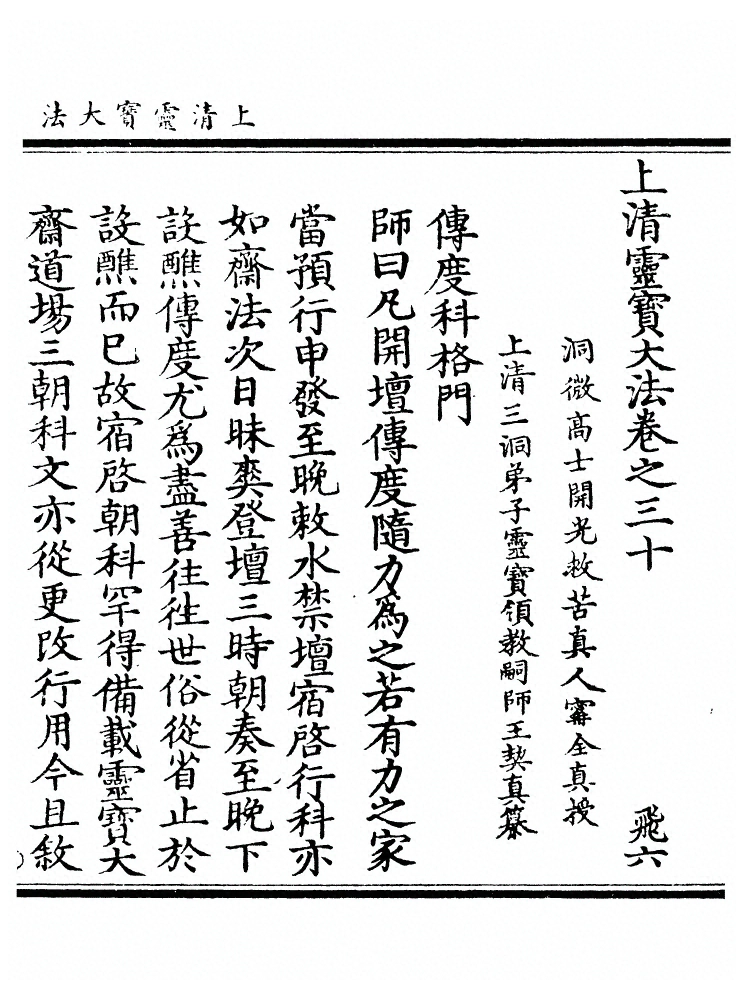 上清靈寶大法
上清靈寶大法卷之三十　飛六
洞微高士開光救苦真人甯全真授
上清三洞弟子靈寶領教嗣師王契真纂
傳度科格門
師曰凡開壇傳度隨力爲之若有力之家
當預行申發至晚敕水禁壇宿啓行科亦
如齋法次日昧爽登壇三時朝奏至晚下
設醮傳度尤爲盡善往往世俗從省止於
設醮而已故宿啓朝科罕得備載靈寶大
齋道場三朝科文亦從更改行用今且敘